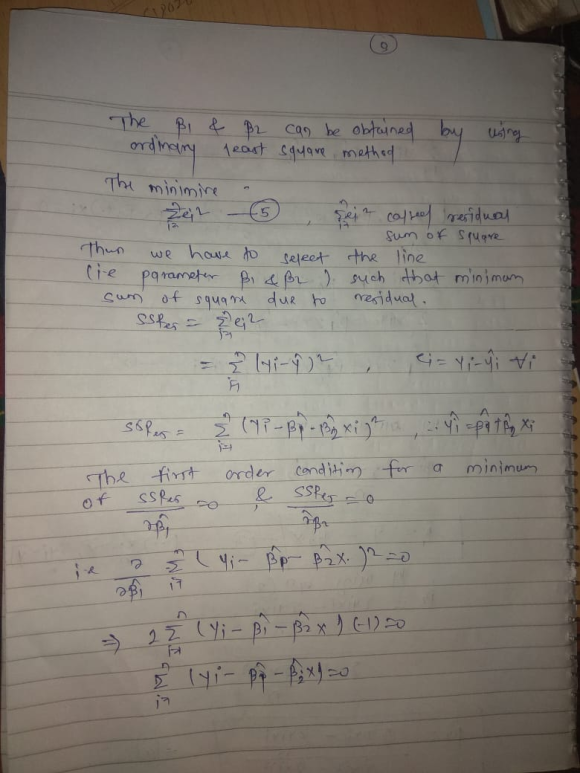 9
The β1 & β2 can be obtained by using
ordinary least square method
The minimize
n Σ i=1 ei² — (5) , n Σ i=1 ei² called residual
sum of square
Thun we have to select the line
(i.e parameter β1 & β2 ) such that minimum
sum of square due to residual.
SSRes = n Σ i=1 ei²
= n Σ i=1 (Yi-Ŷ)² , ei = Yi-Ŷi ∀i
SSRes = n Σ i=1 (Yi-β̂1-β̂2 xi)² , ∴ Ŷi = β̂1+β̂2 xi
The first order condition for a minimum
of SSRes/∂β̂1 =0 & SSRes/∂β̂2 =0
i.e ∂/∂β̂1 n Σ i=1 (Yi- β̂1- β̂2x.)² =0
⇒ 2 n Σ i=1 (Yi - β̂1 - β̂2 x ) (-1)=0
n Σ i=1 (Yi - β̂1 - β̂2x)=0